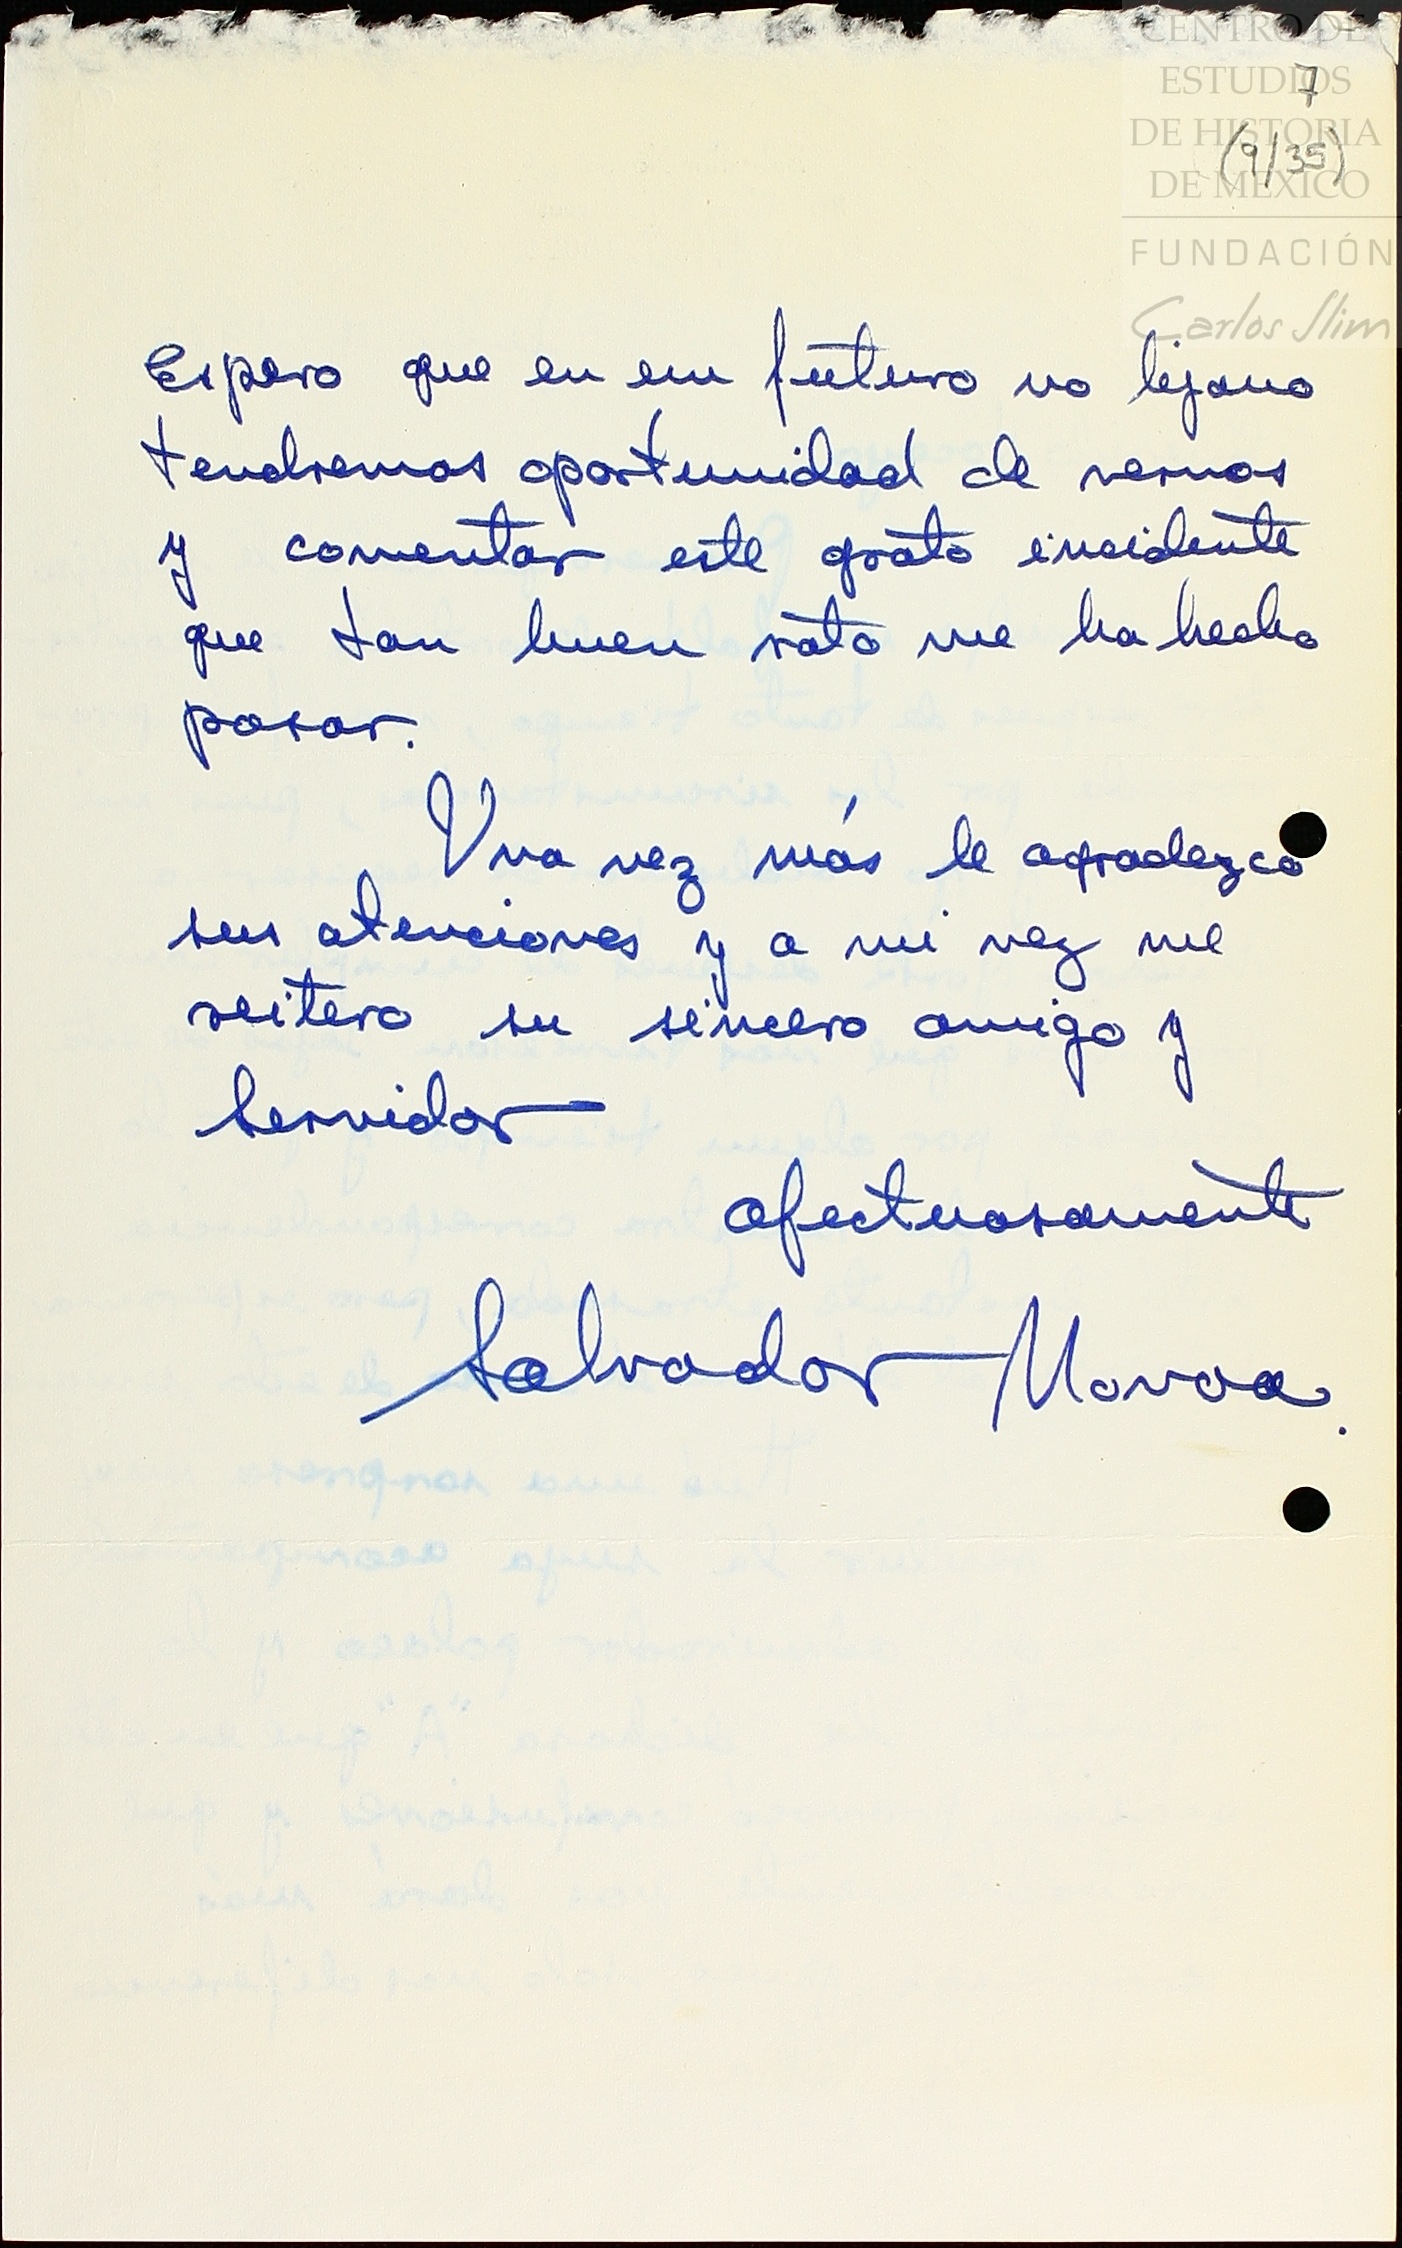 CENTRO DE
ESTUDIOS
DE HISTORIA
DE MÉXICO
FUNDACIÓN
Carlos Slim
7
(9/35)
Espero que en un futuro no lejano
tendremos oportunidad de vernos
y comentar este grato incidente
que tan buen rato me ha hecho
pasar.
Una vez más le agradezco
sus atenciones y a mi vez me
reitero su sincero amigo y
servidor
afectuosamente
Salvador Novoa.